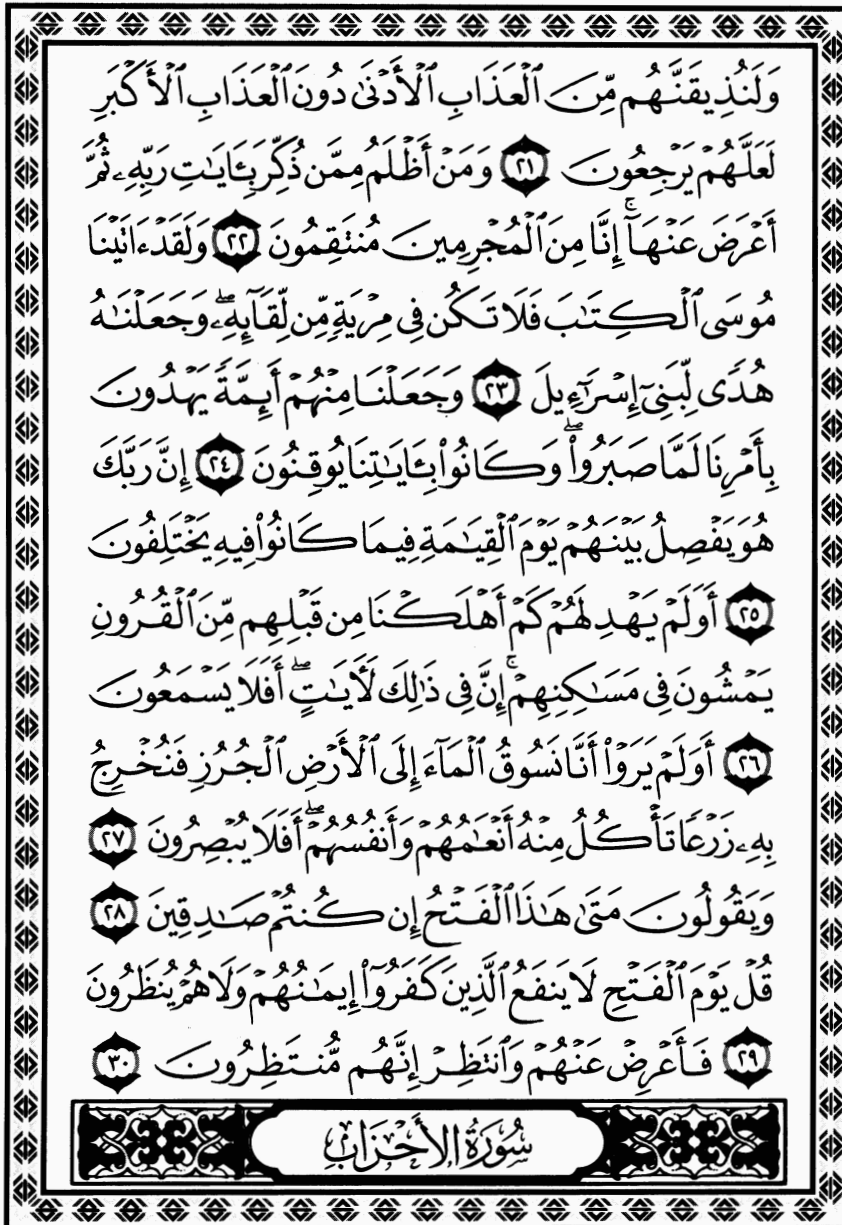 وَلَنُذِيقَنَّهُم مِّنَ ٱلْعَذَابِ ٱلْأَدْنَىٰ دُونَ ٱلْعَذَابِ ٱلْأَكْبَرِ
لَعَلَّهُمْ يَرْجِعُونَ ٢١ وَمَنْ أَظْلَمُ مِمَّن ذُكِّرَ بِـَٔايَٰتِ رَبِّهِۦ ثُمَّ
أَعْرَضَ عَنْهَآ ۚ إِنَّا مِنَ ٱلْمُجْرِمِينَ مُنتَقِمُونَ ٢٢ وَلَقَدْ ءَاتَيْنَا
مُوسَى ٱلْكِتَٰبَ فَلَا تَكُن فِى مِرْيَةٍ مِّن لِّقَآئِهِۦ ۖ وَجَعَلْنَٰهُ
هُدًى لِّبَنِىٓ إِسْرَٰٓءِيلَ ٢٣ وَجَعَلْنَا مِنْهُمْ أَئِمَّةً يَهْدُونَ
بِأَمْرِنَا لَمَّا صَبَرُوا۟ ۖ وَكَانُوا۟ بِـَٔايَٰتِنَا يُوقِنُونَ ٢٤ إِنَّ رَبَّكَ
هُوَ يَفْصِلُ بَيْنَهُمْ يَوْمَ ٱلْقِيَٰمَةِ فِيمَا كَانُوا۟ فِيهِ يَخْتَلِفُونَ
٢٥ أَوَلَمْ يَهْدِ لَهُمْ كَمْ أَهْلَكْنَا مِن قَبْلِهِم مِّنَ ٱلْقُرُونِ
يَمْشُونَ فِى مَسَٰكِنِهِمْ ۚ إِنَّ فِى ذَٰلِكَ لَـَٔايَٰتٍ ۖ أَفَلَا يَسْمَعُونَ
٢٦ أَوَلَمْ يَرَوْا۟ أَنَّا نَسُوقُ ٱلْمَآءَ إِلَى ٱلْأَرْضِ ٱلْجُرُزِ فَنُخْرِجُ
بِهِۦ زَرْعًا تَأْكُلُ مِنْهُ أَنْعَٰمُهُمْ وَأَنفُسُهُمْ ۖ أَفَلَا يُبْصِرُونَ ٢٧
وَيَقُولُونَ مَتَىٰ هَٰذَا ٱلْفَتْحُ إِن كُنتُمْ صَٰدِقِينَ ٢٨
قُلْ يَوْمَ ٱلْفَتْحِ لَا يَنفَعُ ٱلَّذِينَ كَفَرُوٓا۟ إِيمَٰنُهُمْ وَلَا هُمْ يُنظَرُونَ
٢٩ فَأَعْرِضْ عَنْهُمْ وَٱنتَظِرْ إِنَّهُم مُّنتَظِرُونَ ٣٠
سُورَةُ الأَحْزَابِ